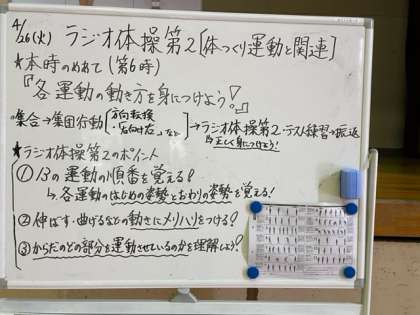 4/26(火) ラジオ体操第2〔体つくり運動と関連〕
★本時のめあて(第6時)
『各運動の動き方を身につけよう!』
集合→集団行動[方向転換・右向け右など]→ラジオ体操第2・テスト練習→振返
正しく身につけよう!
★ラジオ体操第2のポイント
①13の運動の順番を覚える!
↳各運動のはじめの姿勢とおわりの姿勢を覚える!
②伸ばす・曲げるなどの動きにメリハリをつける!
③からだのどの部分を運動させているのかを理解しよう!